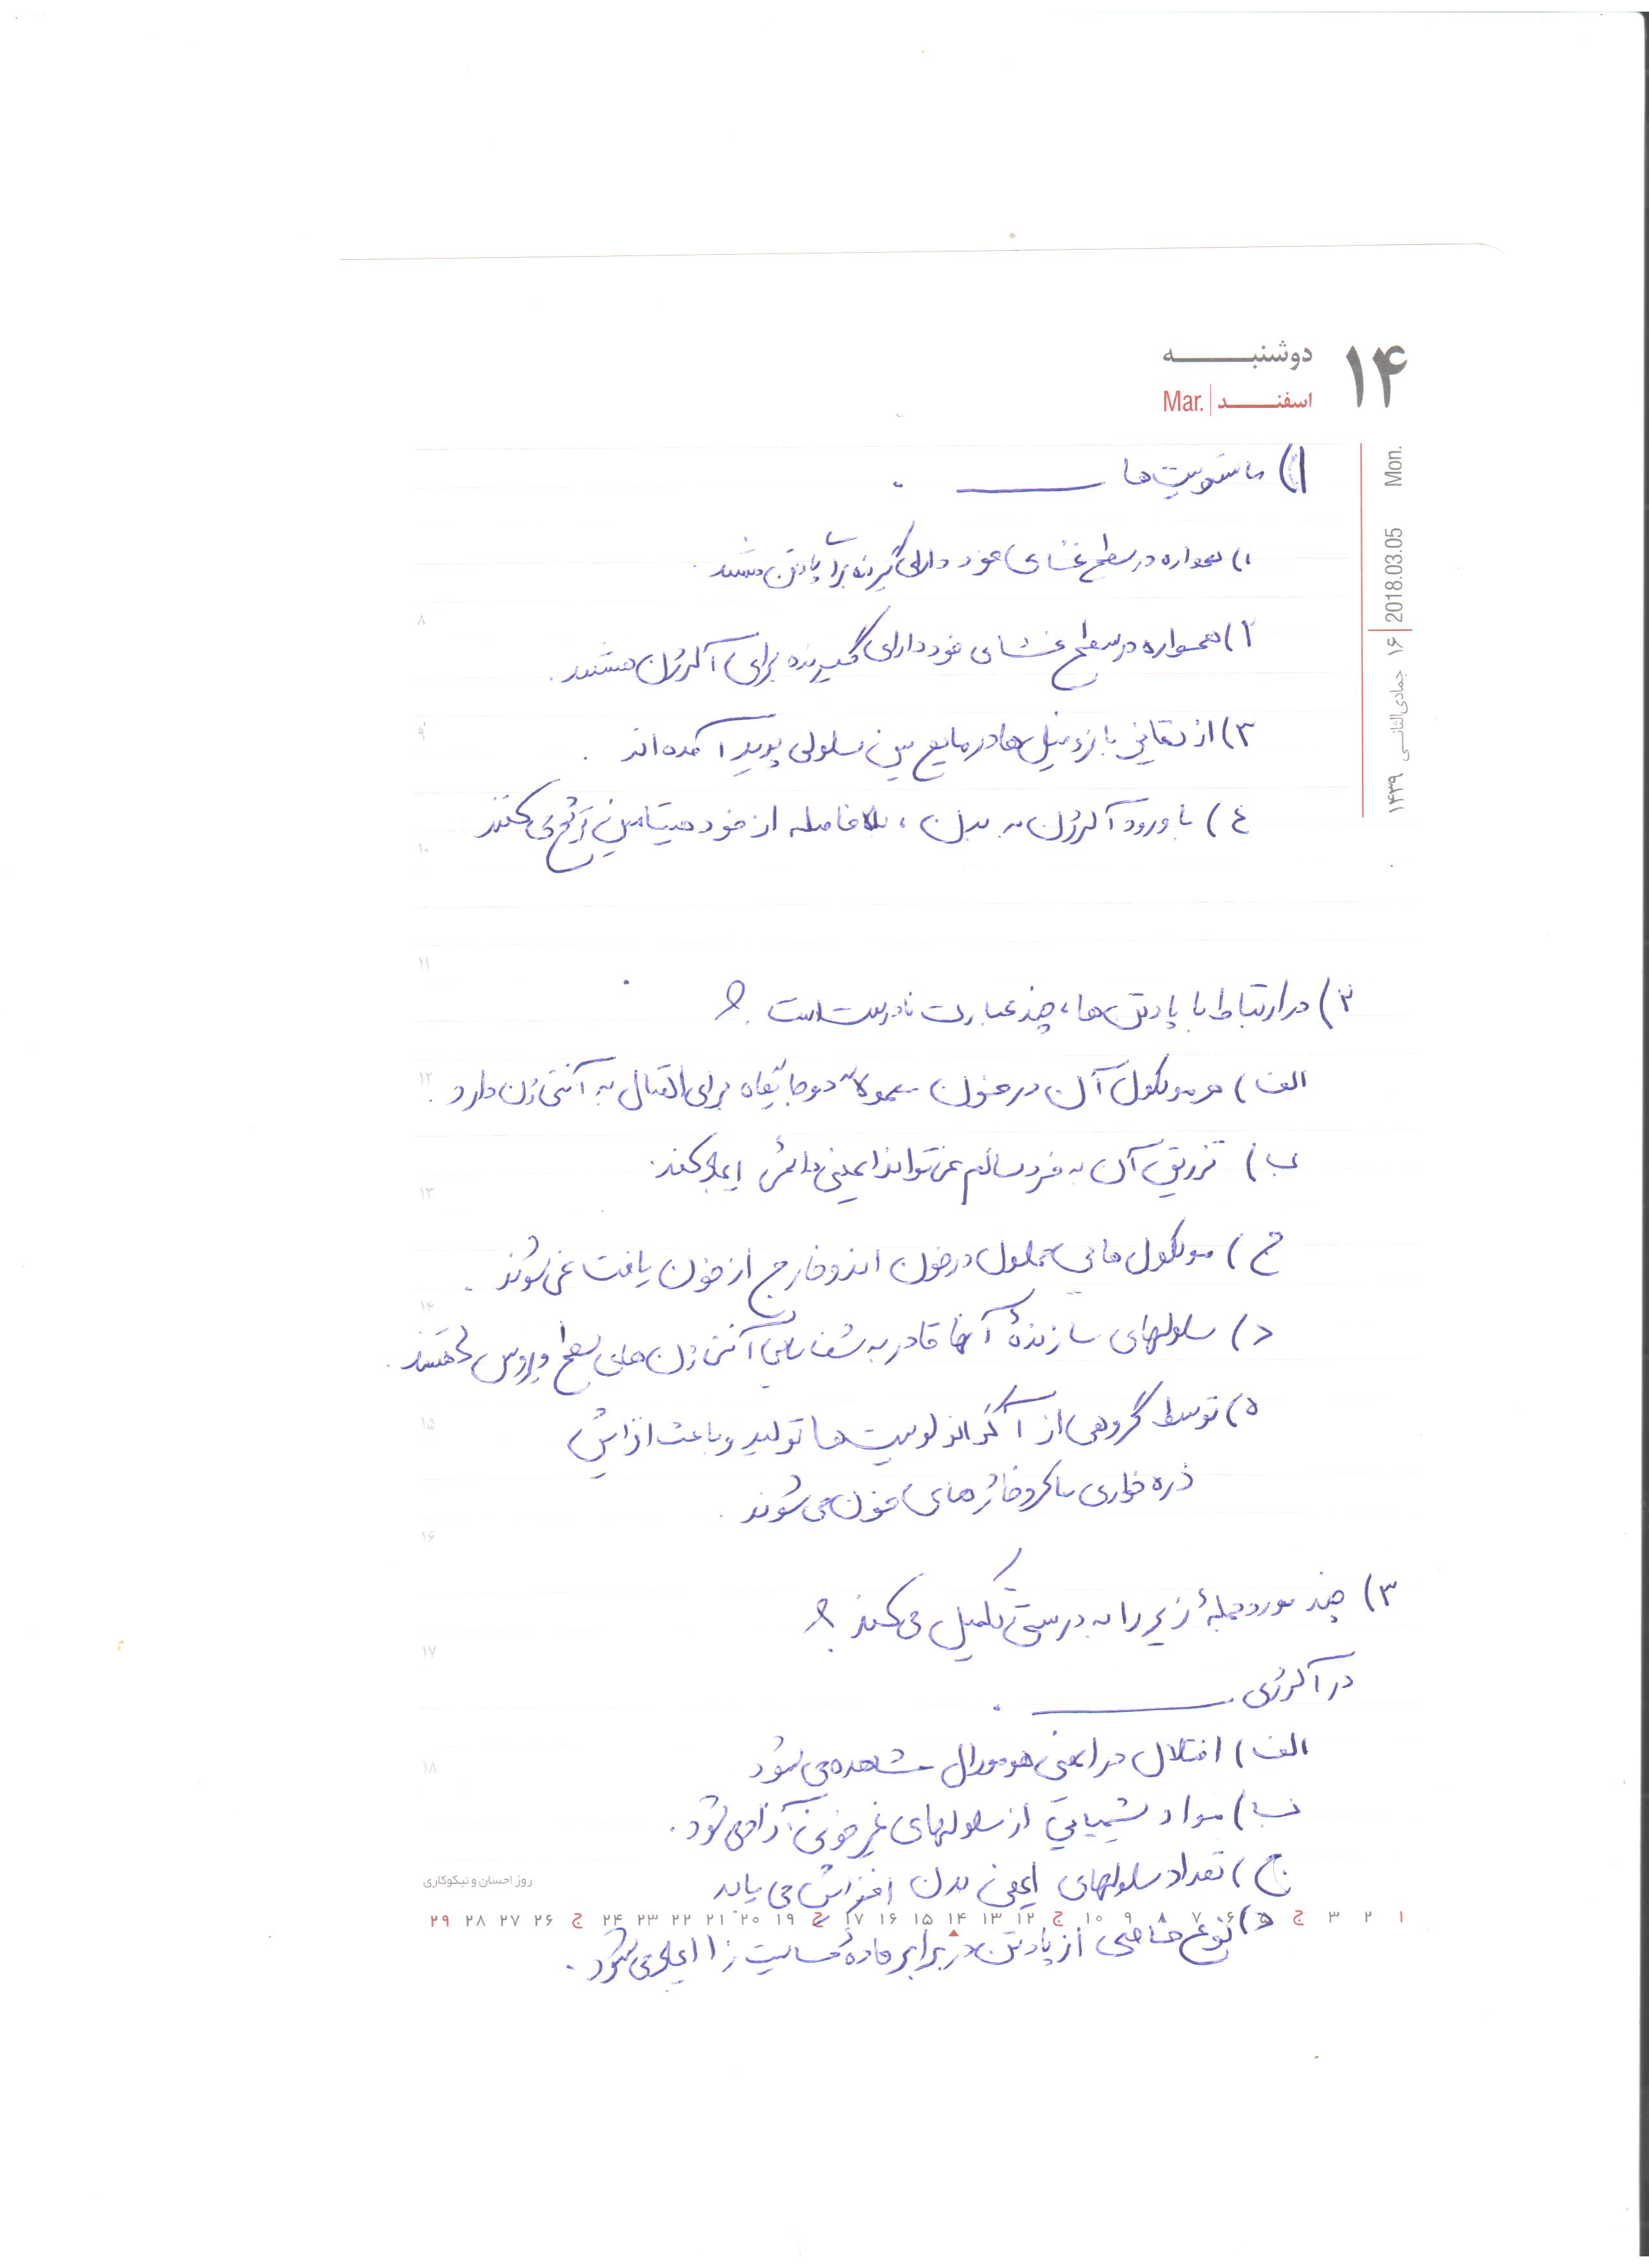 ۱۴
دوشنبه
اسفند | Mar.
Mon.
2018.03.05
۱۶ جمادی‌الثانی ۱۴۳۹
۱) ماستوسیت‌ها ــــــــــ .
۱) همواره در سطح غشای خود دارای گیرنده برای پادتن هستند.
۲) همواره در سطح غشای خود دارای گیرنده برای آلرژن هستند.
۳) از تمایز بازوفیل‌ها در مایع بین سلولی پدید آمده‌اند.
۴) با ورود آلرژن به بدن، بلافاصله از خود هیستامین ترشح می‌کنند
۲) در ارتباط با پادتن‌ها، چند عبارت نادرست است؟
الف) هر مولکول آن در خون معمولاً دو جایگاه برای اتصال به آنتی‌ژن دارد.
ب) تزریق آن به فرد سالم نمی‌تواند ایمنی دائمی ایجاد کند.
ج) مولکول‌هایی محلول در خون اند و خارج از خون یافت نمی‌شوند.
د) سلولهای سازندهٔ آنها قادر به شناسایی آنتی‌ژن‌های سطح ویروس‌ها هستند.
ه) توسط گروهی از آگرانولوسیت‌ها تولید و باعث افزایش
ذره خواری ماکروفاژهای خون می‌شوند.
۳) چند مورد جملهٔ زیر را به درستی تکمیل می‌کند؟
در آلرژی ــــــــــ .
الف) اختلال در ایمنی هومورال مشاهده می‌شود
ب) مواد شیمیایی از سلولهای غیر خونی آزاد می‌شود.
ج) تعداد سلولهای ایمنی بدن افزایش می‌یابد
د) نوع خاصی از پادتن در برابر مادهٔ حساسیت‌زا ایجاد می‌شود.
۸
۹
۱۰
۱۱
۱۲
۱۳
۱۴
۱۵
۱۶
۱۷
۱۸
روز احسان و نیکوکاری
۱ ۲ ۳ ج ۵ ۶ ۷ ۸ ۹ ۱۰ ج ۱۲ ۱۳ ۱۴ ۱۵ ۱۶ ۱۷ ج ۱۹ ۲۰ ۲۱ ۲۲ ۲۳ ۲۴ ج ۲۶ ۲۷ ۲۸ ۲۹